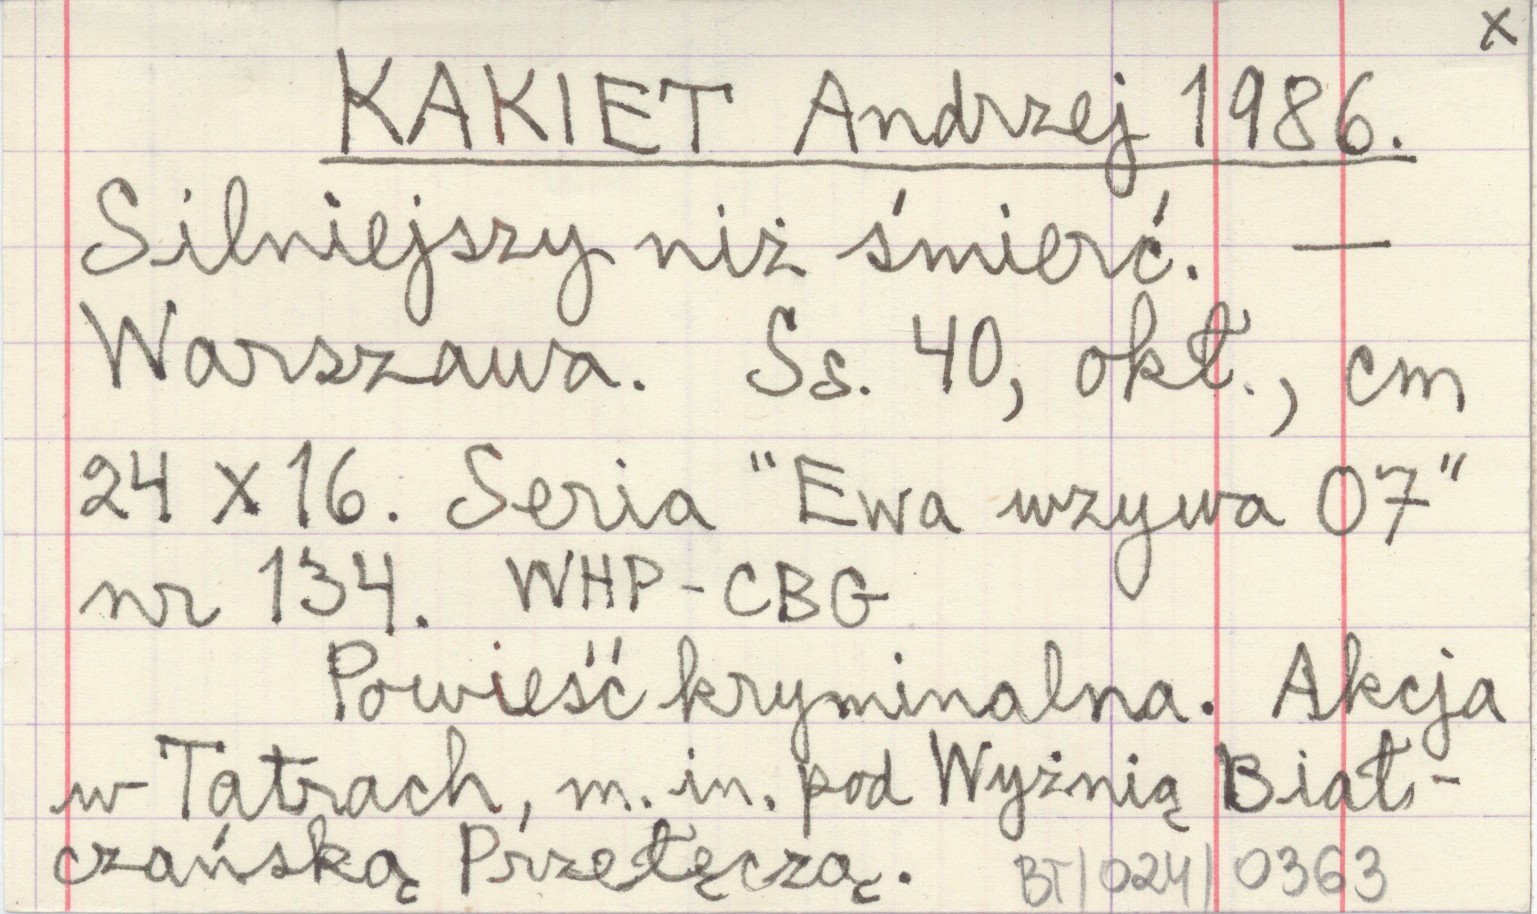 x
KAKIET Andrzej 1986.
Silniejszy niż śmierć. —
Warszawa. Ss. 40, okł., cm
24 x 16. Seria "Ewa wzywa 07"
nr 134. WHP-CBG
Powieść kryminalna. Akcja
w Tatrach, m. in. pod Wyżnią Biał-
czańską Przełęczą. BT/024/0363